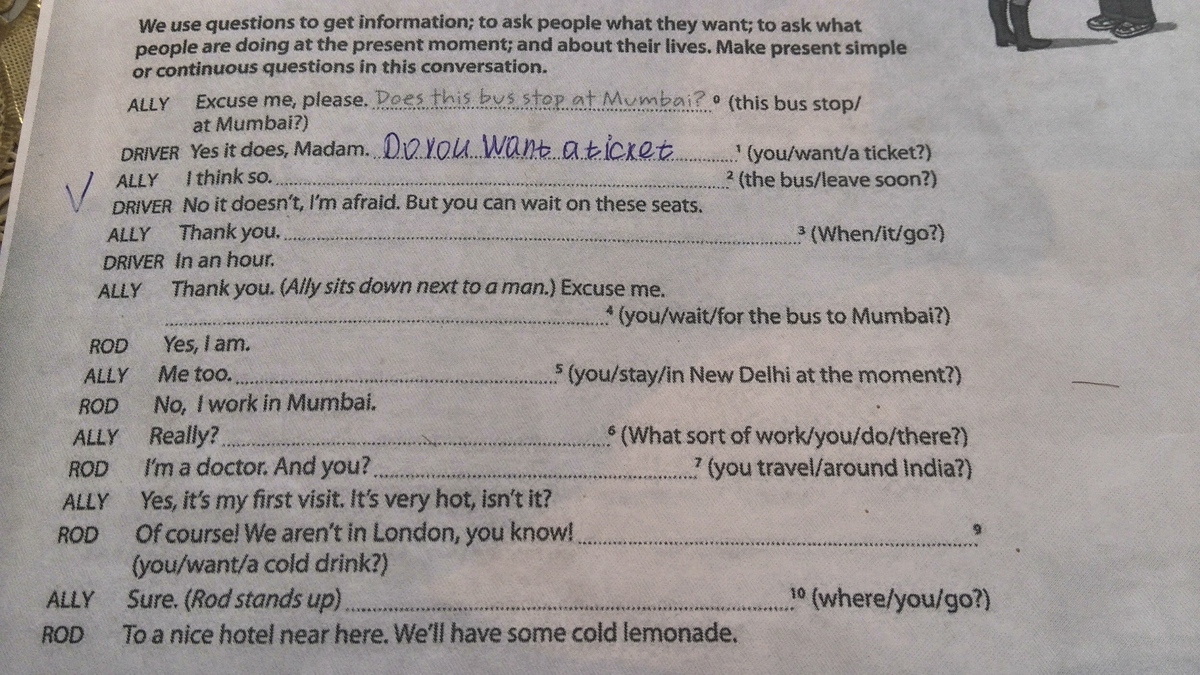 We use questions to get information; to ask people what they want; to ask what
people are doing at the present moment; and about their lives. Make present simple
or continuous questions in this conversation.
ALLY Excuse me, please. Does this bus stop at Mumbai? ⁰ (this bus stop/
at Mumbai?)
DRIVER Yes it does, Madam. Do you want a ticket ¹ (you/want/a ticket?)
ALLY I think so. ² (the bus/leave soon?)
DRIVER No it doesn't, I'm afraid. But you can wait on these seats.
ALLY Thank you. ³ (When/it/go?)
DRIVER In an hour.
ALLY Thank you. (Ally sits down next to a man.) Excuse me.
⁴ (you/wait/for the bus to Mumbai?)
ROD Yes, I am.
ALLY Me too. ⁵ (you/stay/in New Delhi at the moment?)
ROD No, I work in Mumbai.
ALLY Really? ⁶ (What sort of work/you/do/there?)
ROD I'm a doctor. And you? ⁷ (you travel/around India?)
ALLY Yes, it's my first visit. It's very hot, isn't it?
ROD Of course! We aren't in London, you know! ⁹
(you/want/a cold drink?)
ALLY Sure. (Rod stands up) ¹⁰ (where/you/go?)
ROD To a nice hotel near here. We'll have some cold lemonade.